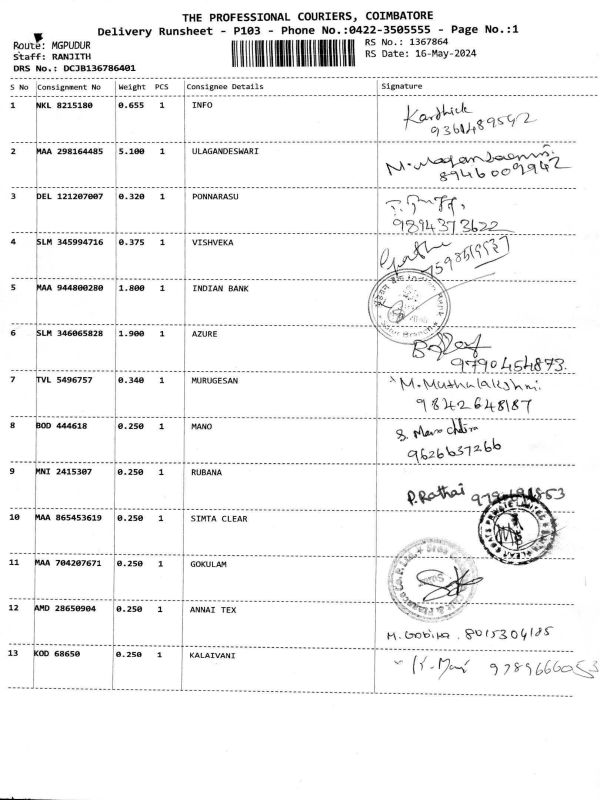 THE PROFESSIONAL COURIERS, COIMBATORE
Delivery Runsheet - P103 - Phone No.:0422-3505555 - Page No.:1
Route: MGPUDUR
RS No.: 1367864
Staff: RANJITH
RS Date: 16-May-2024
DRS No.: DCJB136786401
S No Consignment No Weight PCS Consignee Details Signature
1 NKL 8215180 0.655 1 INFO Karthick
9361489592
2 MAA 298164485 5.100 1 ULAGANDESWARI
8946009942
3 DEL 121207007 0.320 1 PONNARASU
9894373622
4 SLM 345994716 0.375 1 VISHVEKA
5 MAA 944800280 1.800 1 INDIAN BANK Indian Bank
6 SLM 346065828 1.900 1 AZURE
9790454873.
7 TVL 5496757 0.340 1 MURUGESAN M. Muthulakshmi
9842648187
8 BOD 444618 0.250 1 MANO S. Mano chitra
9626637266
9 MNI 2415307 0.250 1 RUBANA P. Rathai
10 MAA 865453619 0.250 1 SIMTA CLEAR
11 MAA 704207671 0.250 1 GOKULAM
12 AMD 28650904 0.250 1 ANNAI TEX M. Gobina. 8015304185
13 KOD 68650 0.250 1 KALAIVANI K. Mani 9789666053